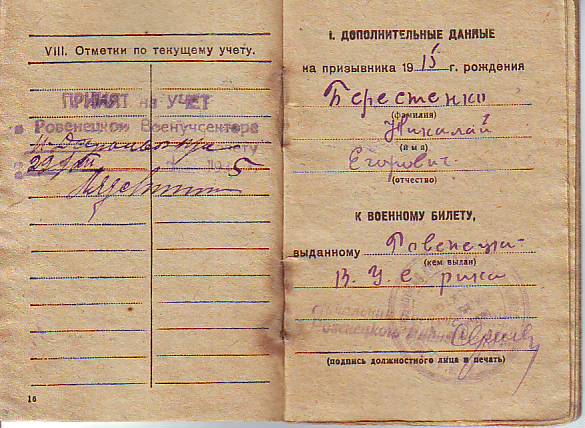 VIII. Отметки по текущему учету.
ПРИНЯТ на УЧЕТ
Ровенецком Военучсентора
учету
29/VIII 1945
16
I. ДОПОЛНИТЕЛЬНЫЕ ДАННЫЕ
на призывника 1915 г. рождения
Берестенко
(фамилия)
Николай
(имя)
Егорович
(отчество)
К ВОЕННОМУ БИЛЕТУ,
выданному Ровенецк
(кем выдан)
В. У. С. РИКа
Ровенецкого
(подпись должностного лица и печать)